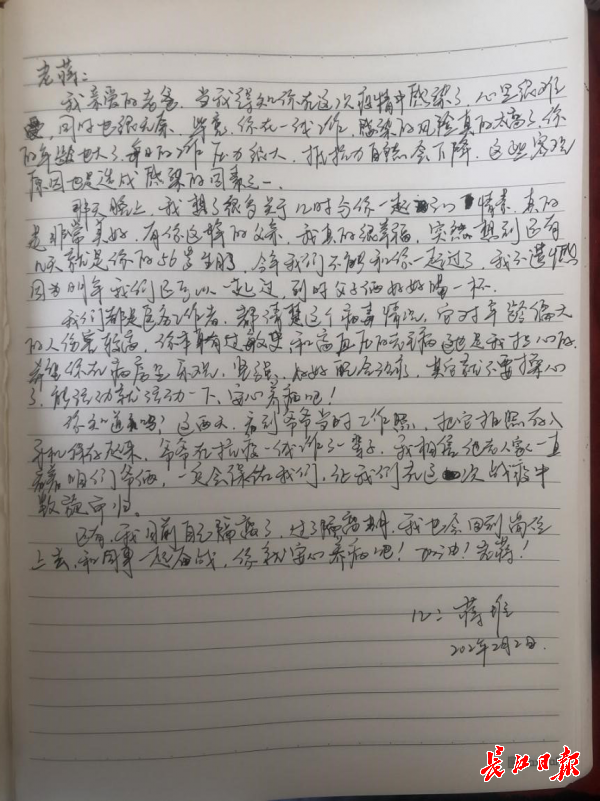 老蒋：
我亲爱的老爸，当我得知你在这次疫情中感染了，心里很难
受，同时也很无奈，毕竟，你在一线工作，感染的风险真的太高了，你
的年龄也大了，每日的工作压力较大，抵抗力自然会下降，这些客观
原因也是造成感染的因素之一。
那天晚上，我想了很多关于儿时与你一起的情景，真的
是非常美好，有你这样的父亲，我真的很幸福，突然想到还有
几天就是你的56岁生日，今年我们不能和你一起过了，我不遗憾
因为明年我们还可以一起过，到时父子俩好好喝一杯。
我们都是医务工作者，都清楚这个病毒情况，它对年龄偏大
的人伤害较高，你本身有过敏史和高血压的老病这也是我担心的，
希望你在病房里乐观，坚强，好好配合治疗，其它就不要操心
了，能活动就活动一下，安心养病吧！
你知道吗？这两天，看到爷爷当时工作照，把它拍照存入
手机保存起来，爷爷在抗疫一线工作了一辈子，我相信他老人家一直
咱们爷俩，一定会保佑我们，让我们在这次战疫中
凯旋而归。
还有，我目前自己隔离了，过了隔离期，我也会回到岗位
上去，和同事一起奋战，你就安心养病吧！加油！老蒋！
儿：蒋
202年2月2日.
长江日报